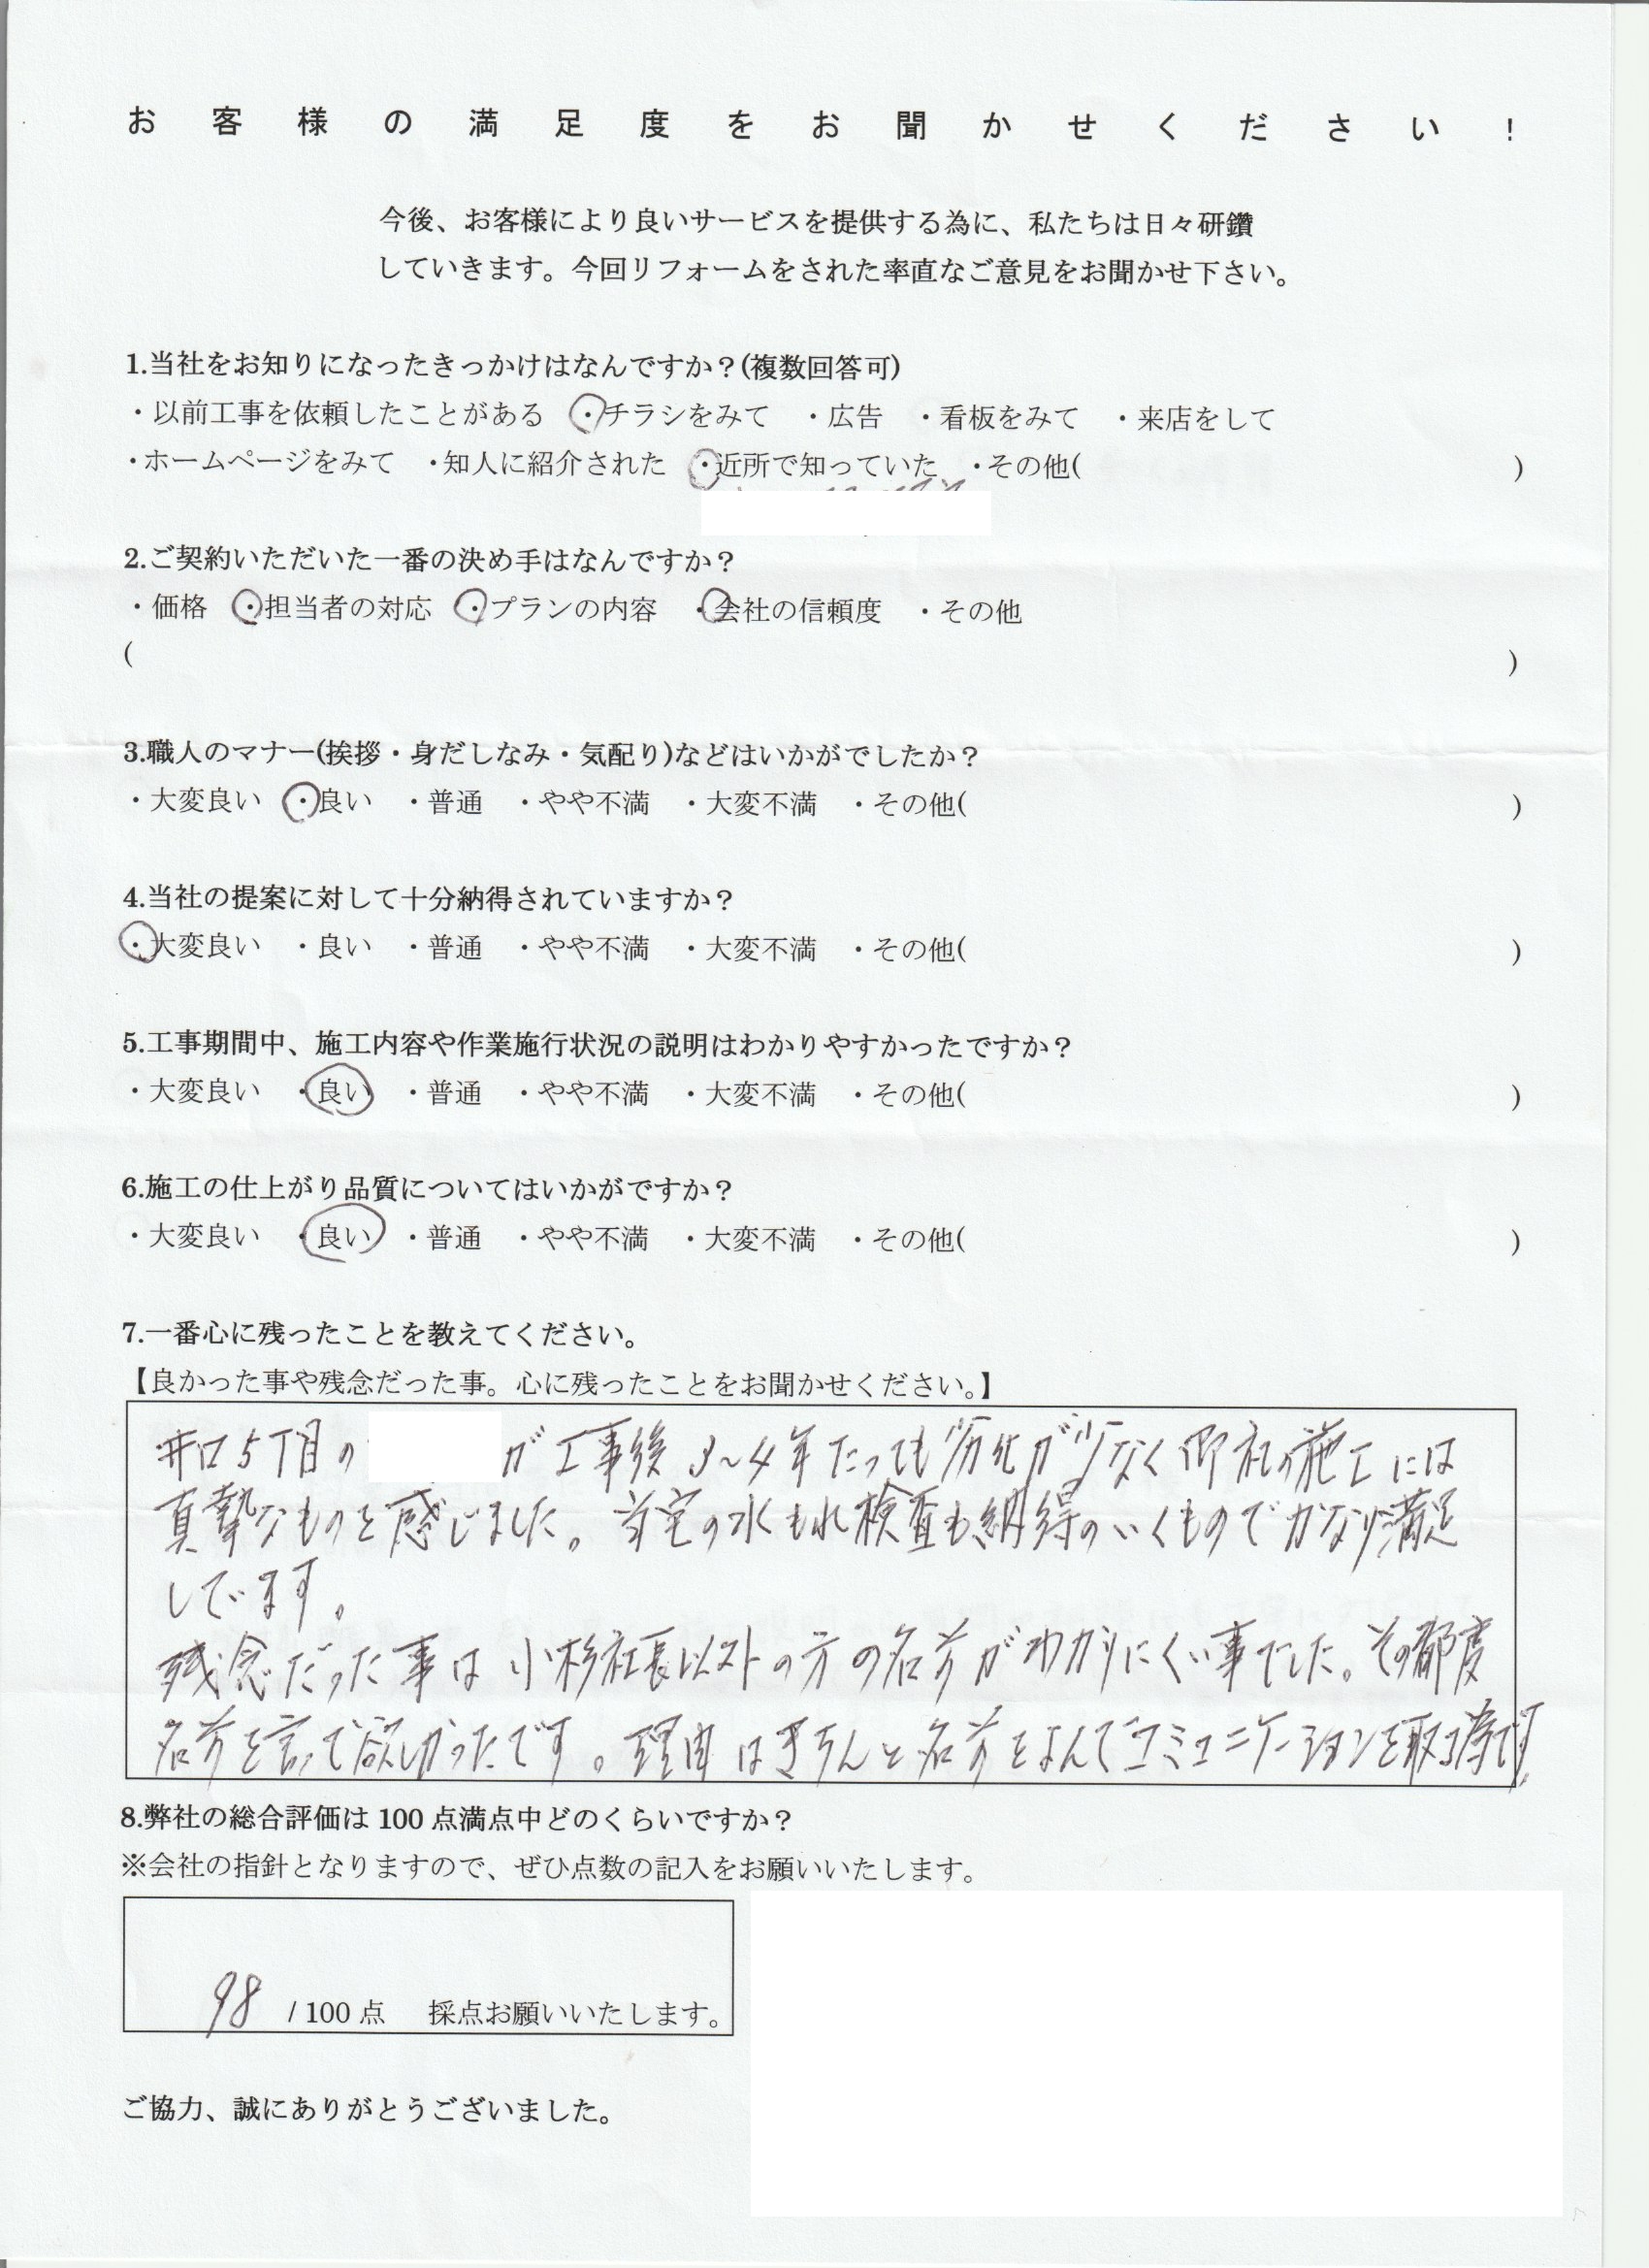 お客様の満足度をお聞かせください！
今後、お客様により良いサービスを提供する為に、私たちは日々研鑽
していきます。今回リフォームをされた率直なご意見をお聞かせ下さい。
1.当社をお知りになったきっかけはなんですか？(複数回答可)
・以前工事を依頼したことがある ・チラシをみて ・広告 ・看板をみて ・来店をして
・ホームページをみて ・知人に紹介された ・近所で知っていた ・その他( )
2.ご契約いただいた一番の決め手はなんですか？
・価格 ・担当者の対応 ・プランの内容 ・会社の信頼度 ・その他
( )
3.職人のマナー(挨拶・身だしなみ・気配り)などはいかがでしたか？
・大変良い ・良い ・普通 ・やや不満 ・大変不満 ・その他( )
4.当社の提案に対して十分納得されていますか？
・大変良い ・良い ・普通 ・やや不満 ・大変不満 ・その他( )
5.工事期間中、施工内容や作業施行状況の説明はわかりやすかったですか？
・大変良い ・良い ・普通 ・やや不満 ・大変不満 ・その他( )
6.施工の仕上がり品質についてはいかがですか？
・大変良い ・良い ・普通 ・やや不満 ・大変不満 ・その他( )
7.一番心に残ったことを教えてください。
【良かった事や残念だった事。心に残ったことをお聞かせください。】
井口5丁目の が工事後3~4年たっても劣化が少なく御社の施工には
真摯なものを感じました。当宅の水もれ検査も納得のいくものでかなり満足
してます。
残念だった事は小杉社長以外の方の名前がわかりにくい事でした。その都度
名前を言って欲しかったです。理由はきちんと名前をよんでコミュニケーションを取る為です。
8.弊社の総合評価は 100 点満点中どのくらいですか？
※会社の指針となりますので、ぜひ点数の記入をお願いいたします。
98 / 100 点 採点お願いいたします。
ご協力、誠にありがとうございました。